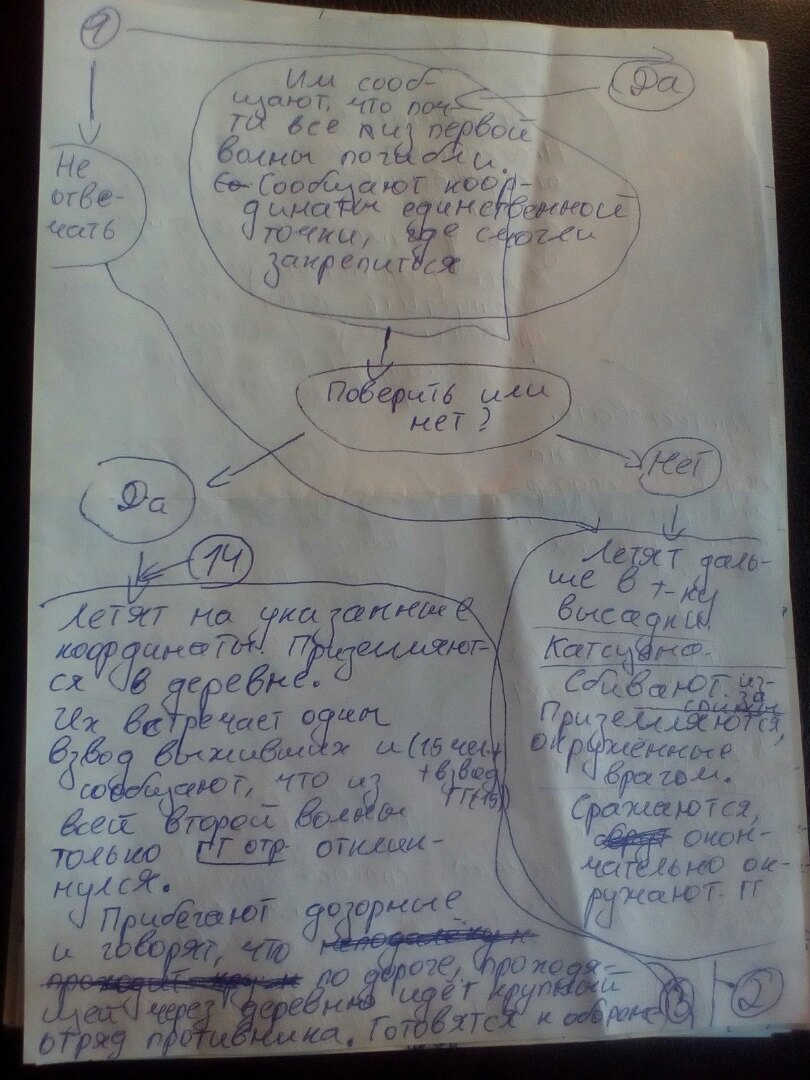 9
Да
Им сооб-
щают, что поч-
ти все из первой
волны погибли.
Сообщают коор-
динаты единственной
точки, где смогли
закрепиться
Не
отве-
чать
Поверить или
нет?
Да
Нет
14
Летят на указанные
координаты. Приземляют-
ся в деревне.
Их встречает один
взвод выживших и (15 чел
+ взвод
ГГ+15)
сообщают, что из
всей второй волны
только ГГ отр. отклик-
нулся.
Прибегают дозорные
и говорят, что неподалёку
проходит
по дороге, проходя-
щей через деревню идёт крупный
отряд противника. Готовятся к обороне
3
Летят даль-
ше в т-ку
высадки.
Катсцена.
Сбивают из-
за
Приземляются,
окружённые
врагом.
Сражаются,
окон-
чательно ок-
ружают ГГ
2